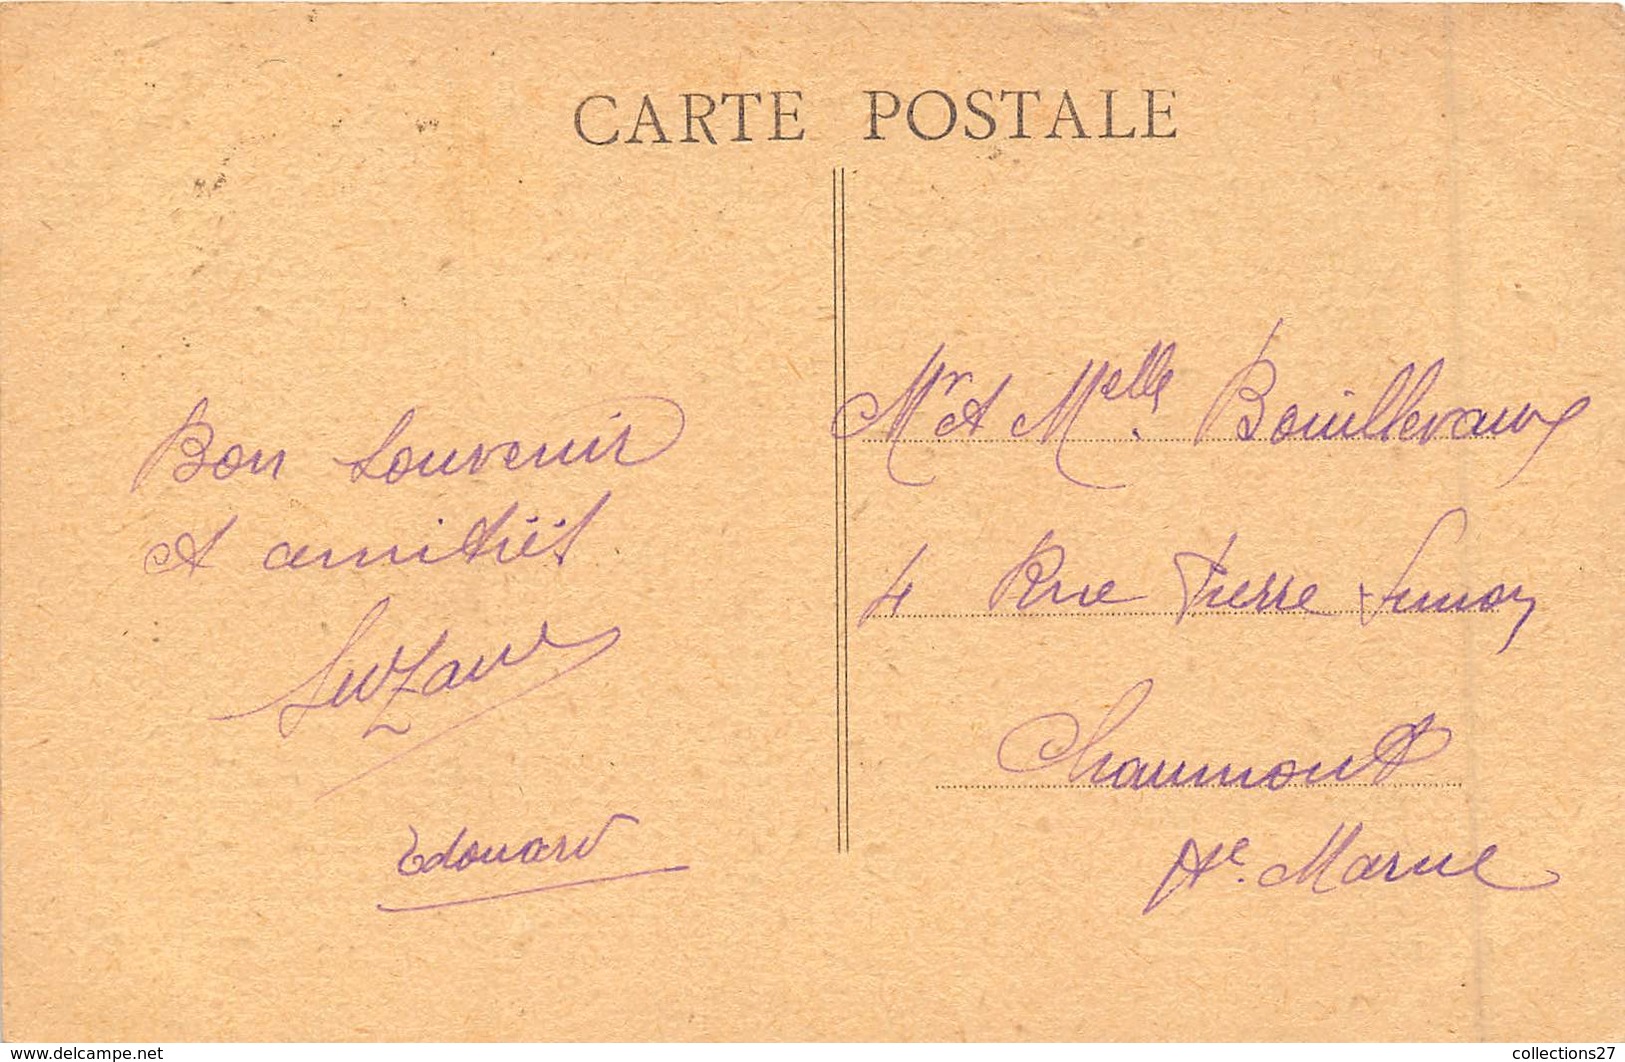 CARTE POSTALE
Bon souvenir
et amitiés
Suzanne
Edouard
Mr et Melle Bouillevaux
4 Rue Pierre
Chaumont
Hte. Marne
www.delcampe.net
collections27